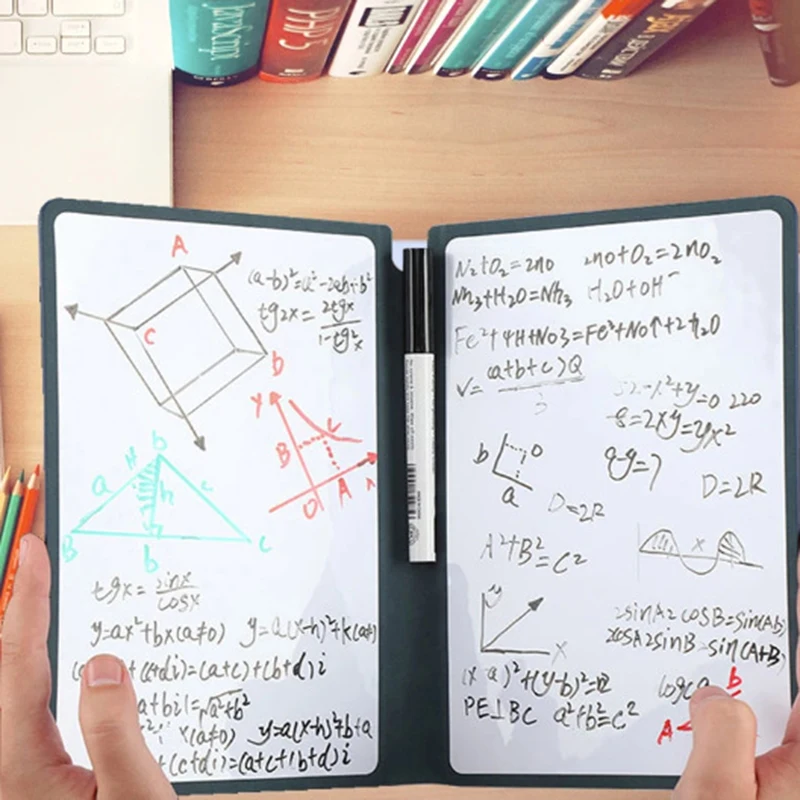 JavaScript
PHP 5
A
C
D
(a-b)²=a²-2ab+b²
tg2x=2tgx/1-tg²x
Y
B
C
O
A
b
H
a
h
c
B
b
C
tgx=sinx/cosx
y=ax²+bx(a≠0) y=a(x-h)²+k(a≠
+(c+di)=(a+c)+(b+d)i
a+bi|=√a²+b²
x(a≠0) y=a(x-h)²+b+a
+(c+di)=(a+c+(b+d)i
N₂+O₂=2no 2no+O₂=2nO₂
Nh₃+H₂O=Nh₃ H₂O+OH⁻
Fe²+4H+NO3=Fe³+No↑+2H₂O
V=(a+b+c)Q/3
+y=0 220
8=2xy=yx²
qy=7
b
O
a
D=2R
D=2R
A²+B²=C²
x
y
X
2sinA2cosB=sin(Ab)
2cosA2sinB=sin(A+B)
(x-a)²+(y-b)²=
PE⊥BC a²+b²=c²
b
A